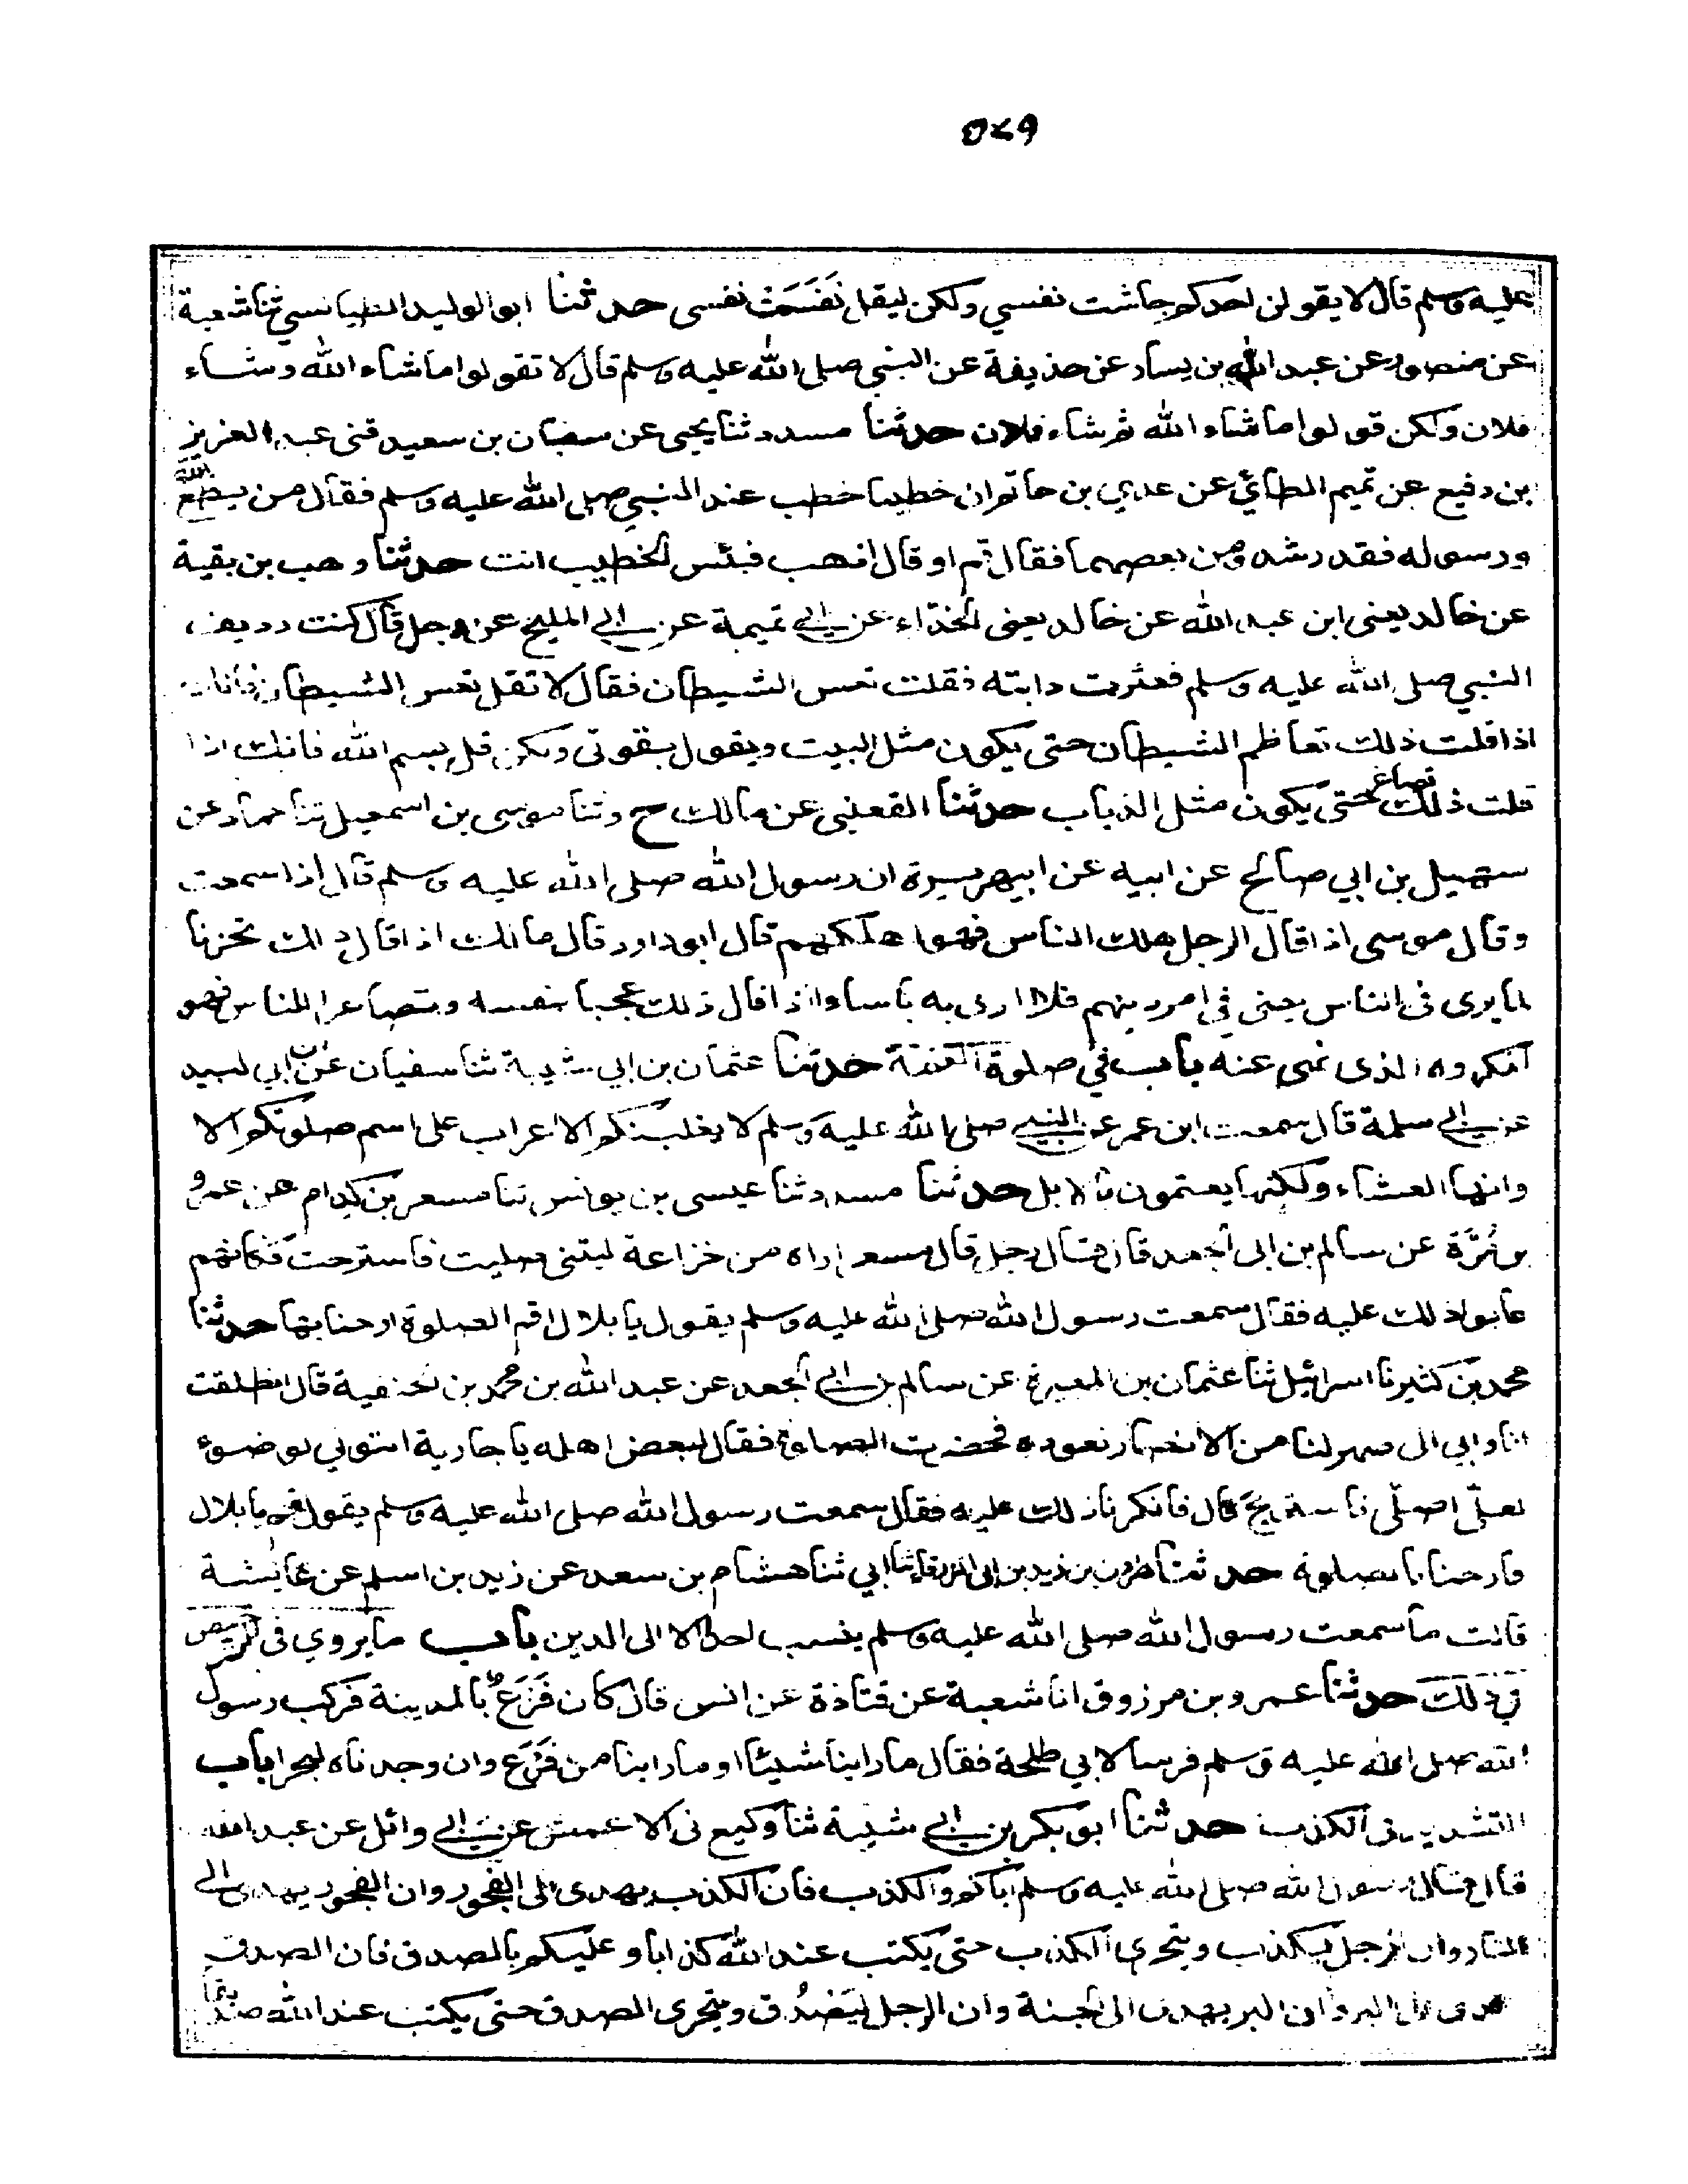 ٥٤٩
عليه وسلم قال لا يقولن احدكم جاشت نفسي ولكن ليقل نَقَسَتْ نفسى حدثنا ابو الوليد الطيالسي ثنا شعبة
عن منصور عن عبد الله بن يسار عن حذيفة عن النبي صلى الله عليه وسلم قال لا تقولوا ما شاء الله وشاء
فلان ولكن قولوا ما شاء الله ثم شاء فلان حدثنا مسدد ثنا يحيى عن سفيان بن سعيد قثنى عبد العزيز
بن رفيع عن تميم الطائي عن عدي بن حاتم ان خطيبا خطب عند النبي صلى الله عليه وسلم فقال من يطع الله
ورسوله فقد رشد ومن يعصهما فقال قم او قال اذهب فبئس الخطيب انت حدثنا وهب بن بقية
عن خالد يعنى ابن عبد الله عن خالد يعنى الحذاء عن ابي تميمة عن ابي المليح عن رجل قال كنت رديف
النبي صلى الله عليه وسلم فعثرت دابته فقلت تعس الشيطان فقال لا تقل تعس الشيطان فانك
اذا قلت ذلك تعاظم الشيطان حتى يكون مثل البيت ويقول بقوتى ولكن قل بسم الله فانك اذا
قلت ذلك تصاغر حتى يكون مثل الذباب حدثنا القعنبى عن مالك ح وثنا موسى بن اسمعيل ثنا حماد عن
سهيل بن ابي صالح عن ابيه عن ابي هريرة ان رسول الله صلى الله عليه وسلم قال اذا سمعت
وقال موسى اذا قال الرجل هلك الناس فهو اهلكهم قال ابو داود قال مالك اذا قال ذلك تحزنا
لما يرى فى الناس يعنى في امر دينهم فلا ارى به باسا واذا قال ذلك عجبا بنفسه وتصاغرا للناس فهو
المكروه الذى نهى عنه باب في صلوة العتمة حدثنا عثمان بن ابي شيبة ثنا سفيان عن ابن ابي لبيد
عن ابي سلمة قال سمعت ابن عمر عن النبي صلى الله عليه وسلم لا يغلبنكم الاعراب على اسم صلوتكم الا
وانها العشاء ولكنها يعتمون بالابل حدثنا مسدد ثنا عيسى بن يونس ثنا مسعر بن كدام عن عمرو
بن مُرَّة عن سالم بن ابى الجعد قال قال رجل قال مسعر اراه من خزاعة ليتنى صليت فاسترحت فكانهم
عابوا ذلك عليه فقال سمعت رسول الله صلى الله عليه وسلم يقول يا بلال اقم الصلوة ارحنا بها حدثنا
محمد بن كثير نا اسرائيل ثنا عثمان بن المغيرة عن سالم بن ابي الجعد عن عبد الله بن محمد بن الحنفية قال انطلقت
انا وابي الى صهر لنا من الانصار نعوده فحضرت الصلوة فقال لبعض اهله يا جارية ائتوني بوضوء
لعلّى اصلّى فاستريح قال فانكرنا ذلك عليه فقال سمعت رسول الله صلى الله عليه وسلم يقول قم يا بلال
فارحنا بالصلوة حدثنا هارون بن زيد بن ابى الزرقاء ثنا ابي ثنا هشام بن سعد عن زيد بن اسلم عن عائشة
قالت ما سمعت رسول الله صلى الله عليه وسلم ينسب احدا الا الى الدين باب ما يروى فى الترخيص
في ذلك حدثنا عمرو بن مرزوق انا شعبة عن قتادة عن انس قال كان فَزَعٌ بالمدينة فركب رسول
الله صلى الله عليه وسلم فرسا لابي طلحة فقال ما راينا شيئا او ما راينا من فَزَع وان وجدناه لبحرا باب
التشديد فى الكذب حدثنا ابو بكر بن ابي شيبة ثنا وكيع نى الاعمش عن ابي وائل عن عبد الله
قال قال رسول الله صلى الله عليه وسلم اياكم والكذب فان الكذب يهدى الى الفجور وان الفجور يهدى الى
النار وان الرجل ليكذب ويتحرى الكذب حتى يكتب عند الله كذابا وعليكم بالصدق فان الصدق
يهدى الى البر وان البر يهدى الى الجنة وان الرجل ليَصْدُق ويتحرى الصدق حتى يكتب عند الله صديقا